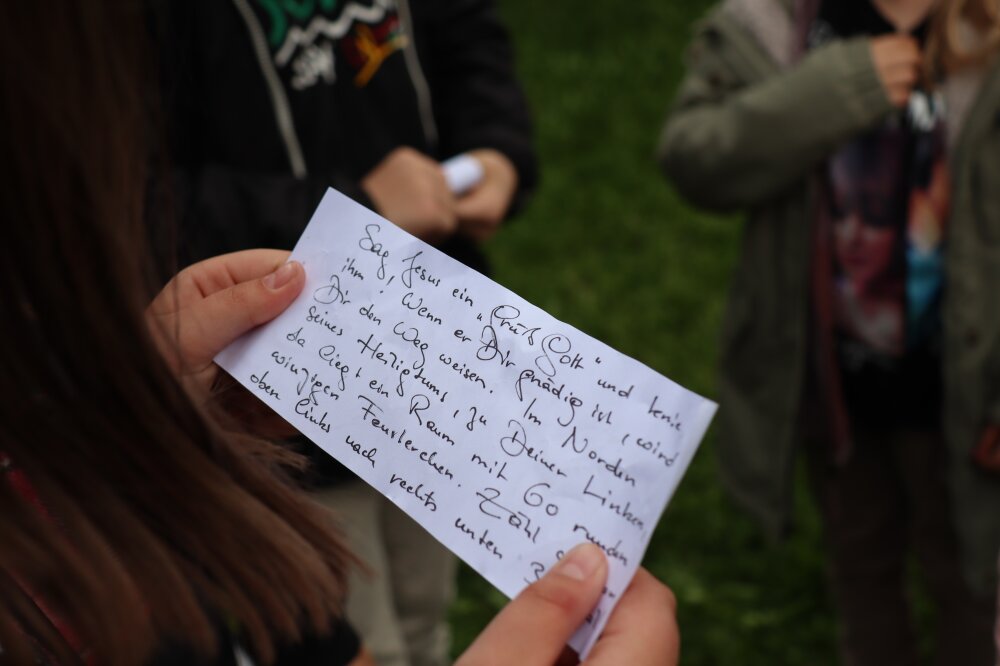 Sag Jesus ein „Grüß Gott“ und knie
ihm, Wenn er Dir gnädig ist, wird
Dir den Weg weisen. Im Norden
seines Heiligtums, zu Deiner Linken,
da liegt ein Raum mit 60 runden
winzigen Fensterchen. Zähl
oben links nach rechts unten 3